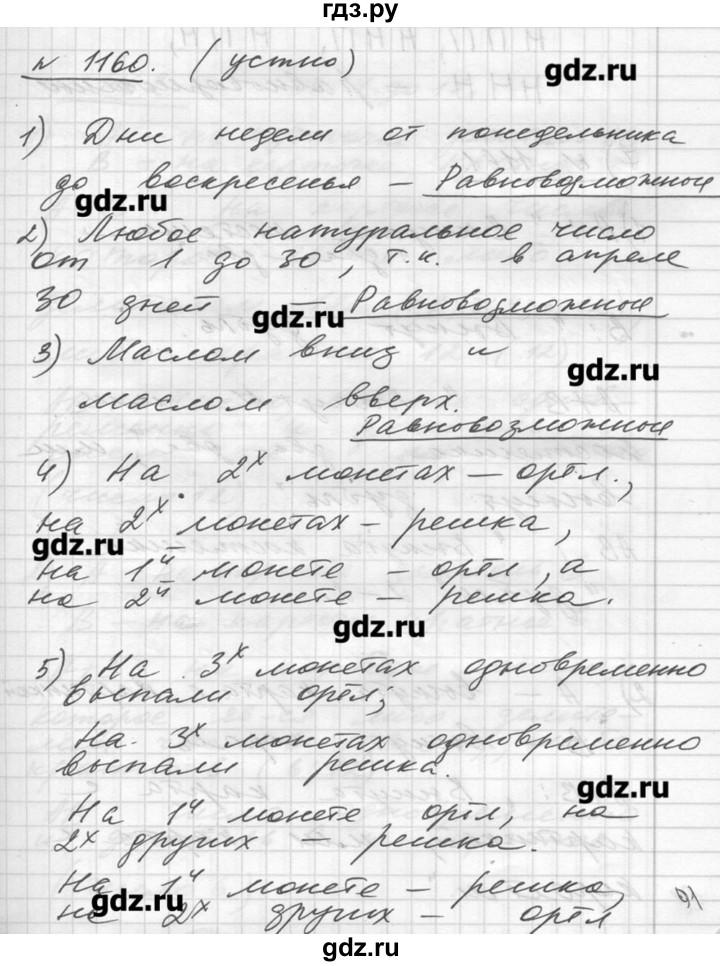 гдз.ру
№ 1160. (устно)
gdz.ru
1) Дни недели от понедельника
до воскресенья – Равновозможные
gdz.ru
2) Любое натуральное число
от 1 до 30, т.к. в апреле
30 дней – Равновозможные
gdz.ru
3) Маслом вниз и
gdz.ru
маслом вверх.
Равновозможные
4) На 2х монетах – орёл.,
на 2х монетах – решка,
gdz.ru
на 1й монете – орёл, а
на 2й монете – решка.
gdz.ru
5) На 3х монетах одновременно
выпали орёл;
На 3х монетах одновременно
выпали решка.
gdz.ru
На 1й монете орёл, на
2х других – решка.
На 1й монете – решка,
gdz.ru
на 2х других – орёл
91
gdz.ru